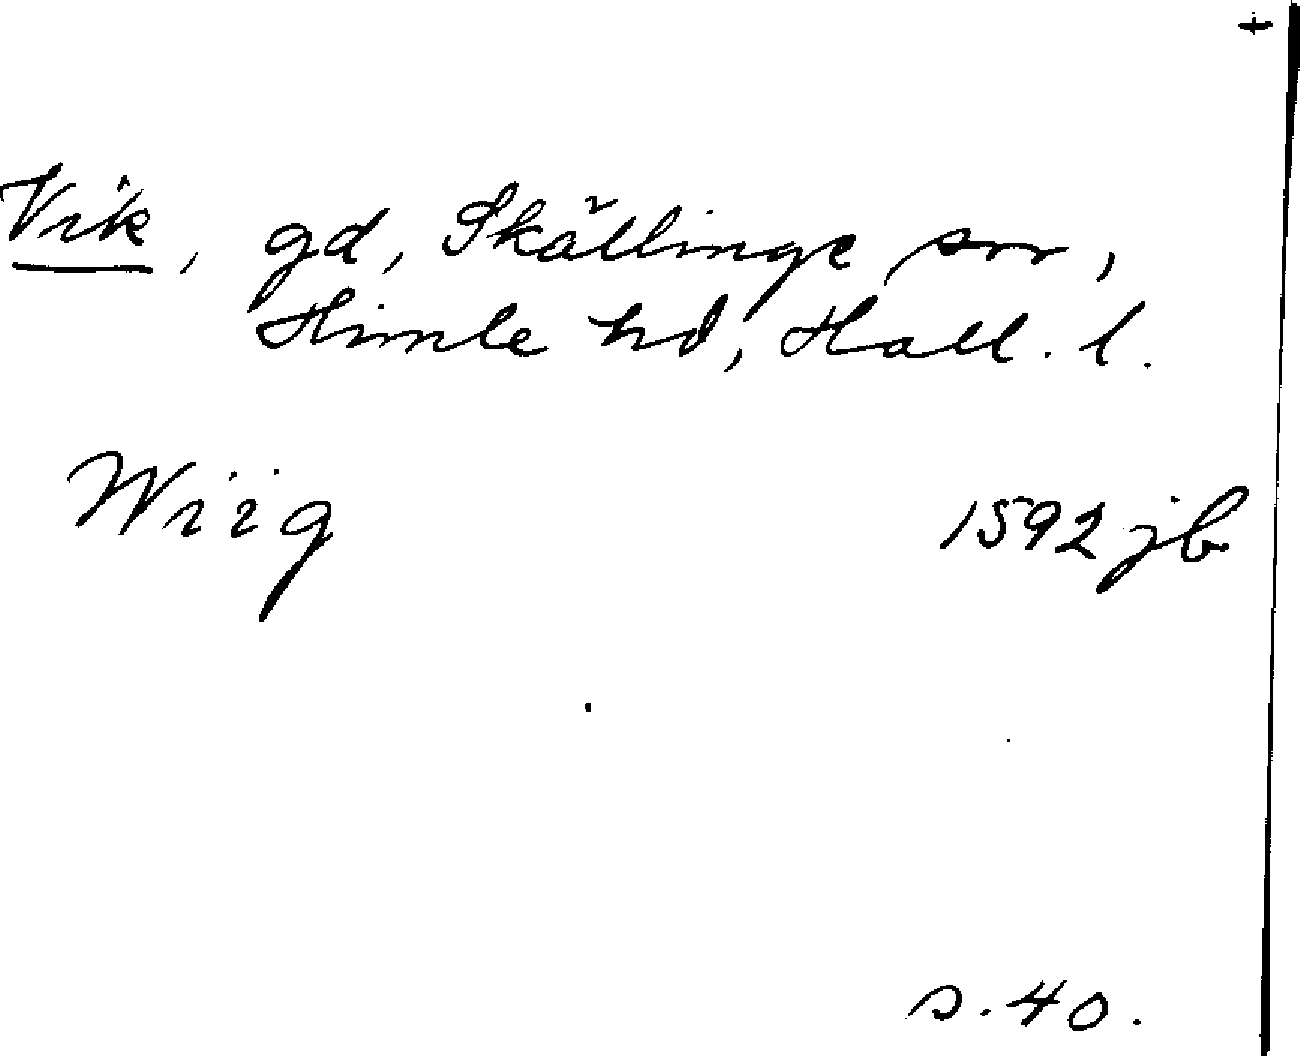 +
Vik, gd, Skällinge sn,
Himle hd, Hall. l.
Wiig 1592 jb
s. 40.